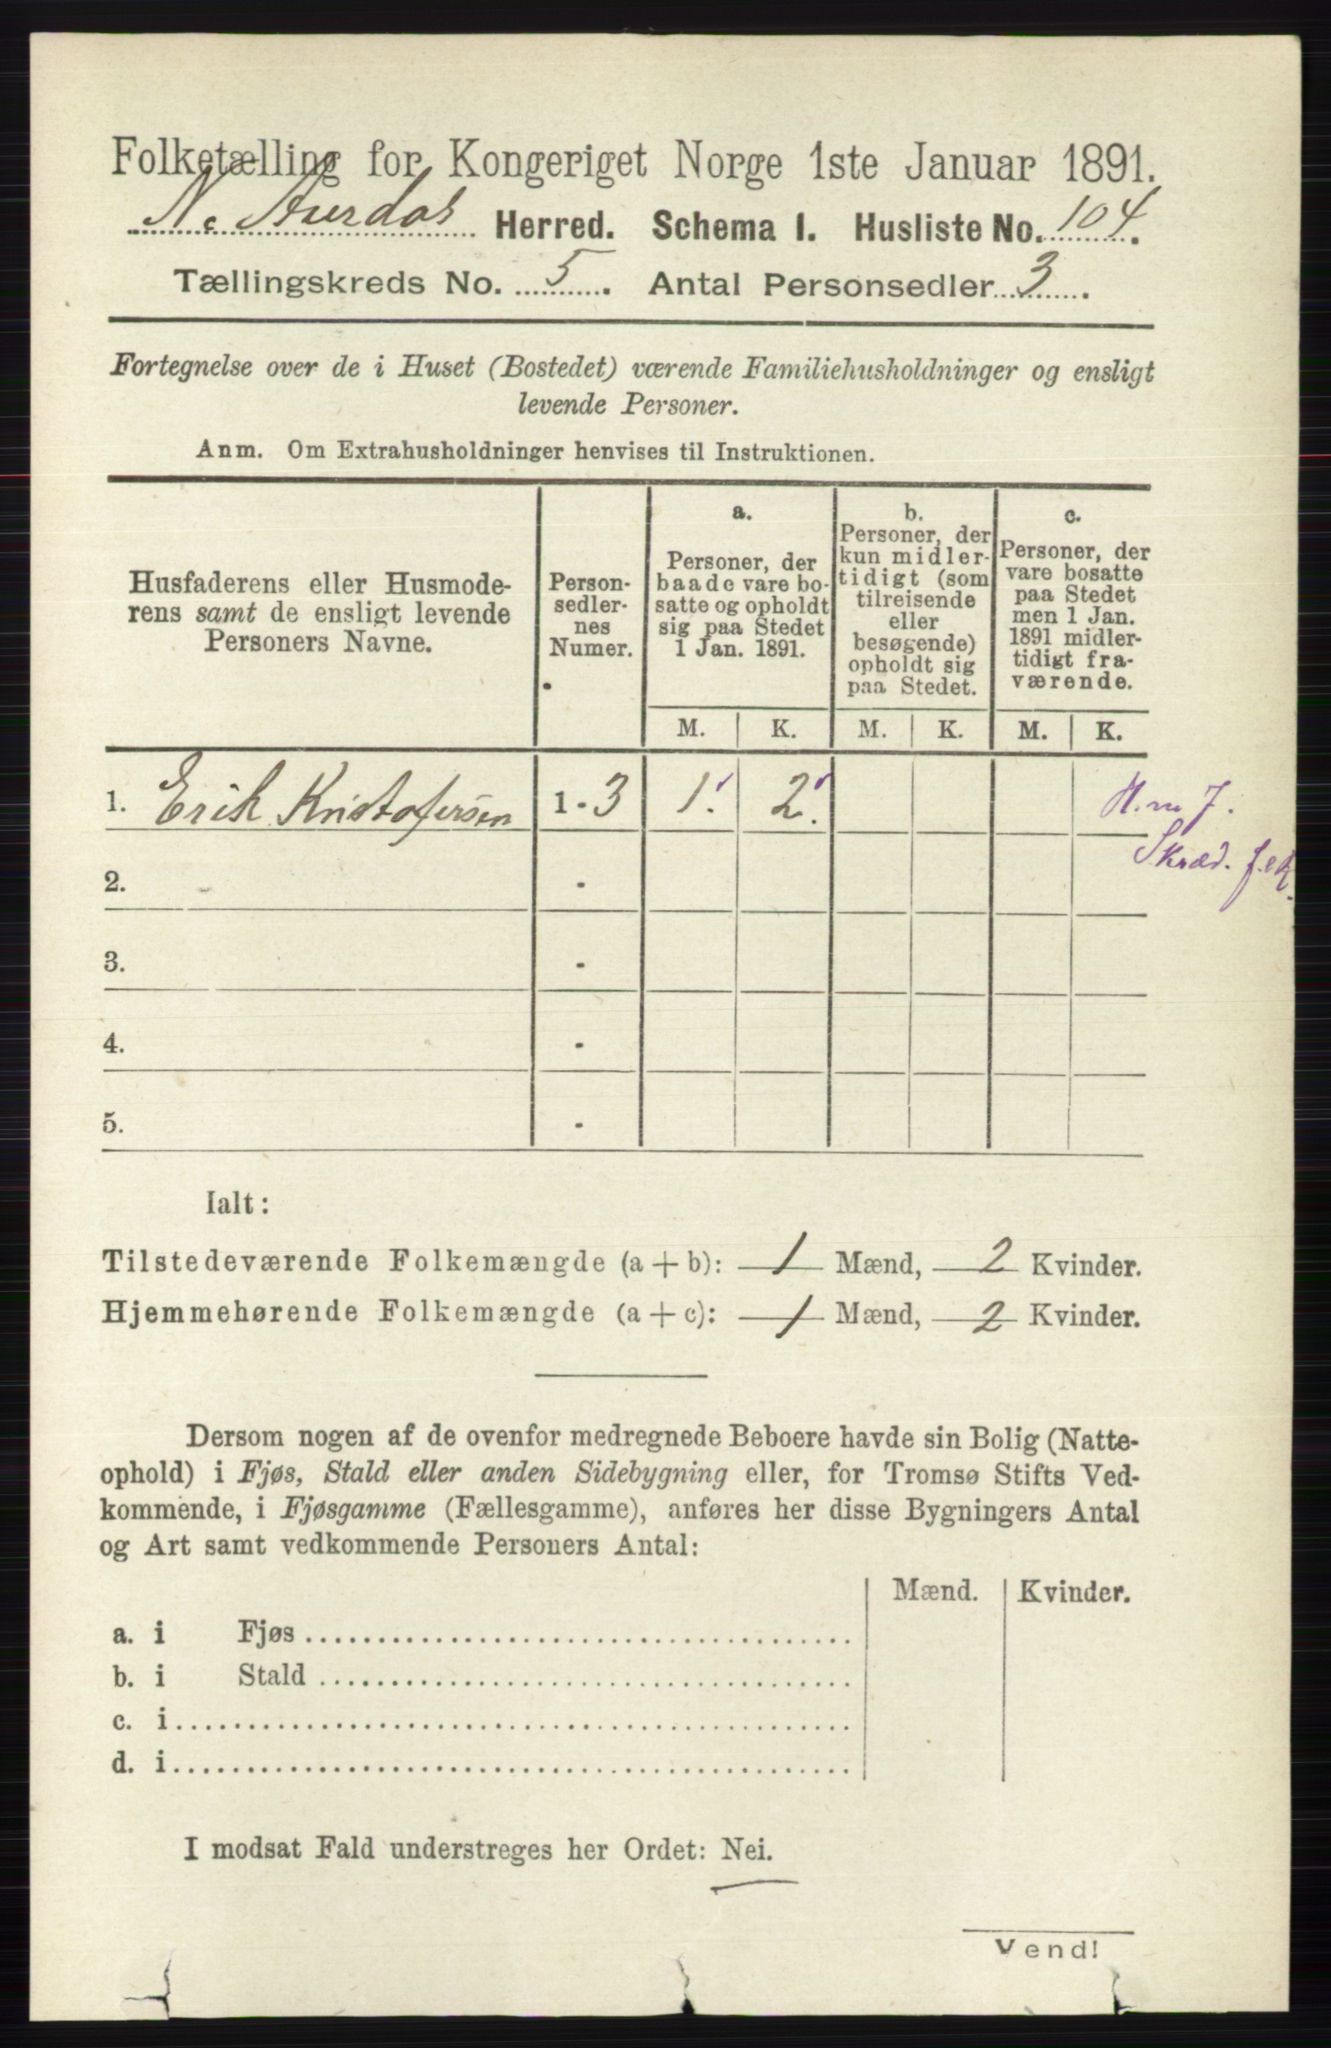 Folketælling for Kongeriget Norge 1ste Januar 1891.
N. Aurdal Herred. Schema 1. Husliste No. 104.
Tællingskreds No. 5. Antal Personsedler 3.
Fortegnelse over de i Huset (Bostedet) værende Familiehusholdninger og ensligt
levende Personer.
Anm. Om Extrahusholdninger henvises til Instruktionen.
Husfaderens eller Husmode-
rens samt de ensligt levende
Personers Navne.
Person-
sedler-
nes
Numer.
a.
Personer, der
baade vare bo-
satte og opholdt
sig paa Stedet
1 Jan. 1891.
b.
Personer, der
kun midler-
tidigt (som
tilreisende
eller
besøgende)
opholdt sig
paa Stedet.
c.
Personer, der
vare bosatte
paa Stedet
men 1 Jan.
1891 midler-
tidigt fra-
værende.
M. K. M. K. M. K.
1. Erik Kristofersen 1 - 3 1. 2. H. m 7.
Skræd.
2. -
3. -
4. -
5. -
Ialt:
Tilstedeværende Folkemængde (a + b): 1 Mænd, 2 Kvinder.
Hjemmehørende Folkemængde (a + c): 1 Mænd, 2 Kvinder.
Dersom nogen af de ovenfor medregnede Beboere havde sin Bolig (Natte-
ophold) i Fjøs, Stald eller anden Sidebygning eller, for Tromsø Stifts Ved-
kommende, i Fjøsgamme (Fællesgamme), anføres her disse Bygningers Antal
og Art samt vedkommende Personers Antal:
Mænd. Kvinder.
a. i Fjøs
b. i Stald
c. i
d. i
I modsat Fald understreges her Ordet: Nei.
Vend!